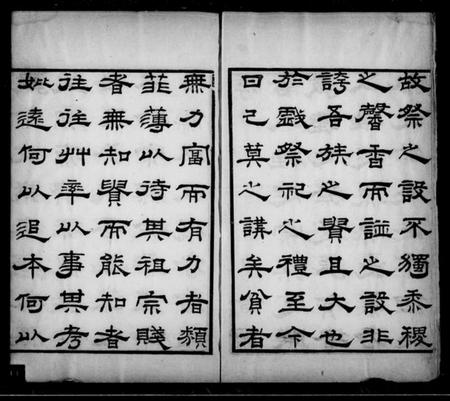 故祭之設不獨黍稷
之馨香而謚之設非
誇吾族之賢且大也
於戲祭祀之禮至今
日已莫之講矣貧者
無力富而有力者類
菲薄以待其祖宗賤
者無知貴而能知者
往往艸率以事其考
妣遠何以追本何以